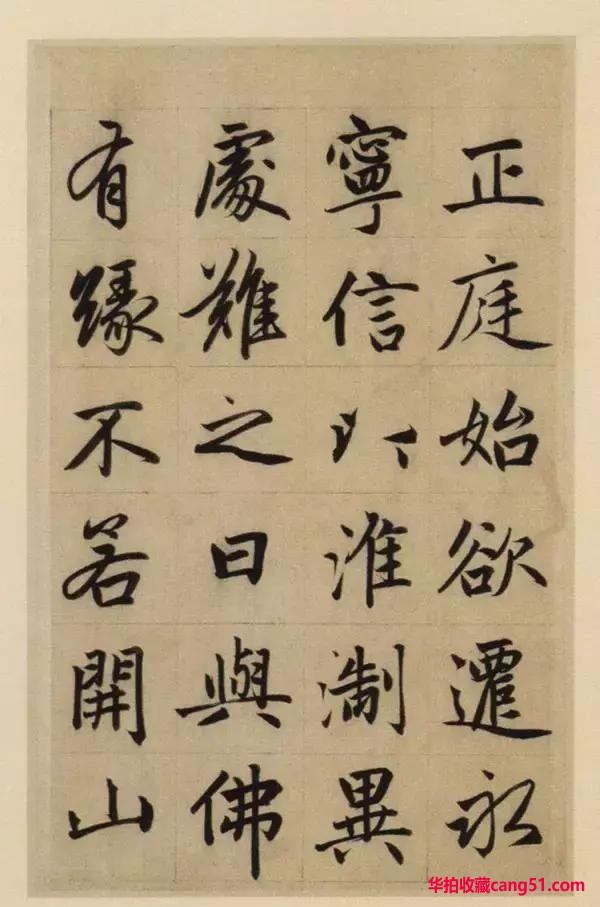 正庭始欲遷永
寧信以淮淛異
處難之曰與佛
有緣不若開山
华拍收藏cang51.com